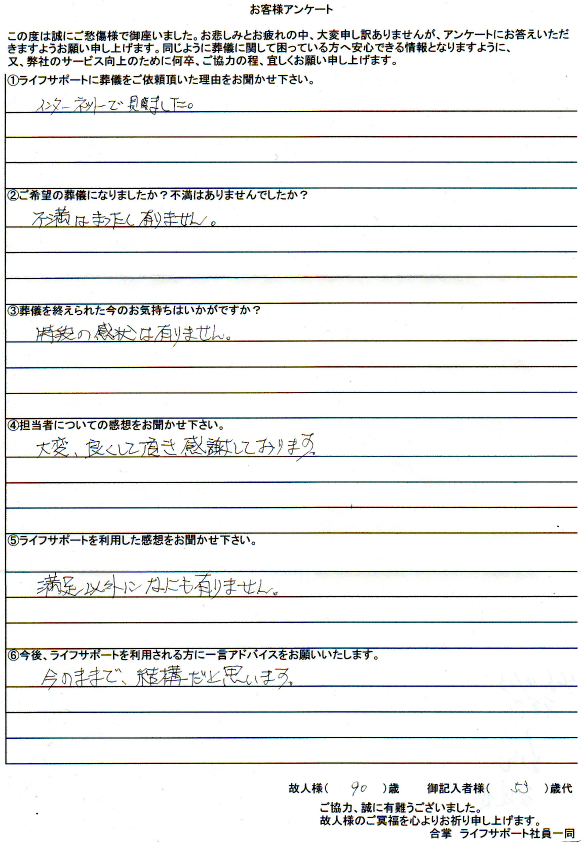 お客様アンケート
この度は誠にご愁傷様で御座いました。お悲しみとお疲れの中、大変申し訳ありませんが、アンケートにお答えいただ
きますようお願い申し上げます。同じように葬儀に関して困っている方へ安心できる情報となりますように、
又、弊社のサービス向上のために何卒、ご協力の程、宜しくお願い申し上げます。
①ライフサポートに葬儀をご依頼頂いた理由をお聞かせ下さい。
インターネットで見ました。
②ご希望の葬儀になりましたか？不満はありませんでしたか？
不満はまったく有りません。
③葬儀を終えられた今のお気持ちはいかがですか？
特段の感状は有りません。
④担当者についての感想をお聞かせ下さい。
大変、良くして頂き感謝しております。
⑤ライフサポートを利用した感想をお聞かせ下さい。
満足以外になにも有りません。
⑥今後、ライフサポートを利用される方に一言アドバイスをお願いいたします。
今のままで、結構だと思います。
故人様（ 90 ）歳 御記入者様（ 53 ）歳代
ご協力、誠に有難うございました。
故人様のご冥福を心よりお祈り申し上げます。
合掌 ライフサポート社員一同